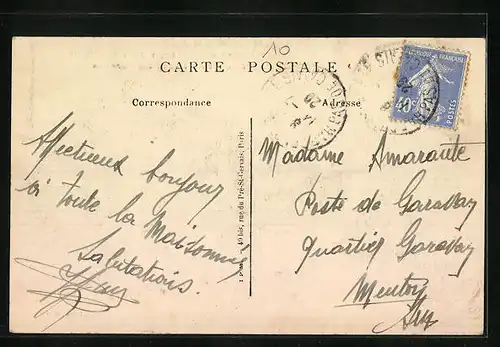 10
CARTE POSTALE
Correspondance
Adresse
40c
POSTES
Affectueux bonjour
à toute la Maisonnée
Salutations.
Madame Amarante
Poste de Garavan
Quartier Garavan
Menton
40 bis, rue du Pré-St-Gervais, Paris